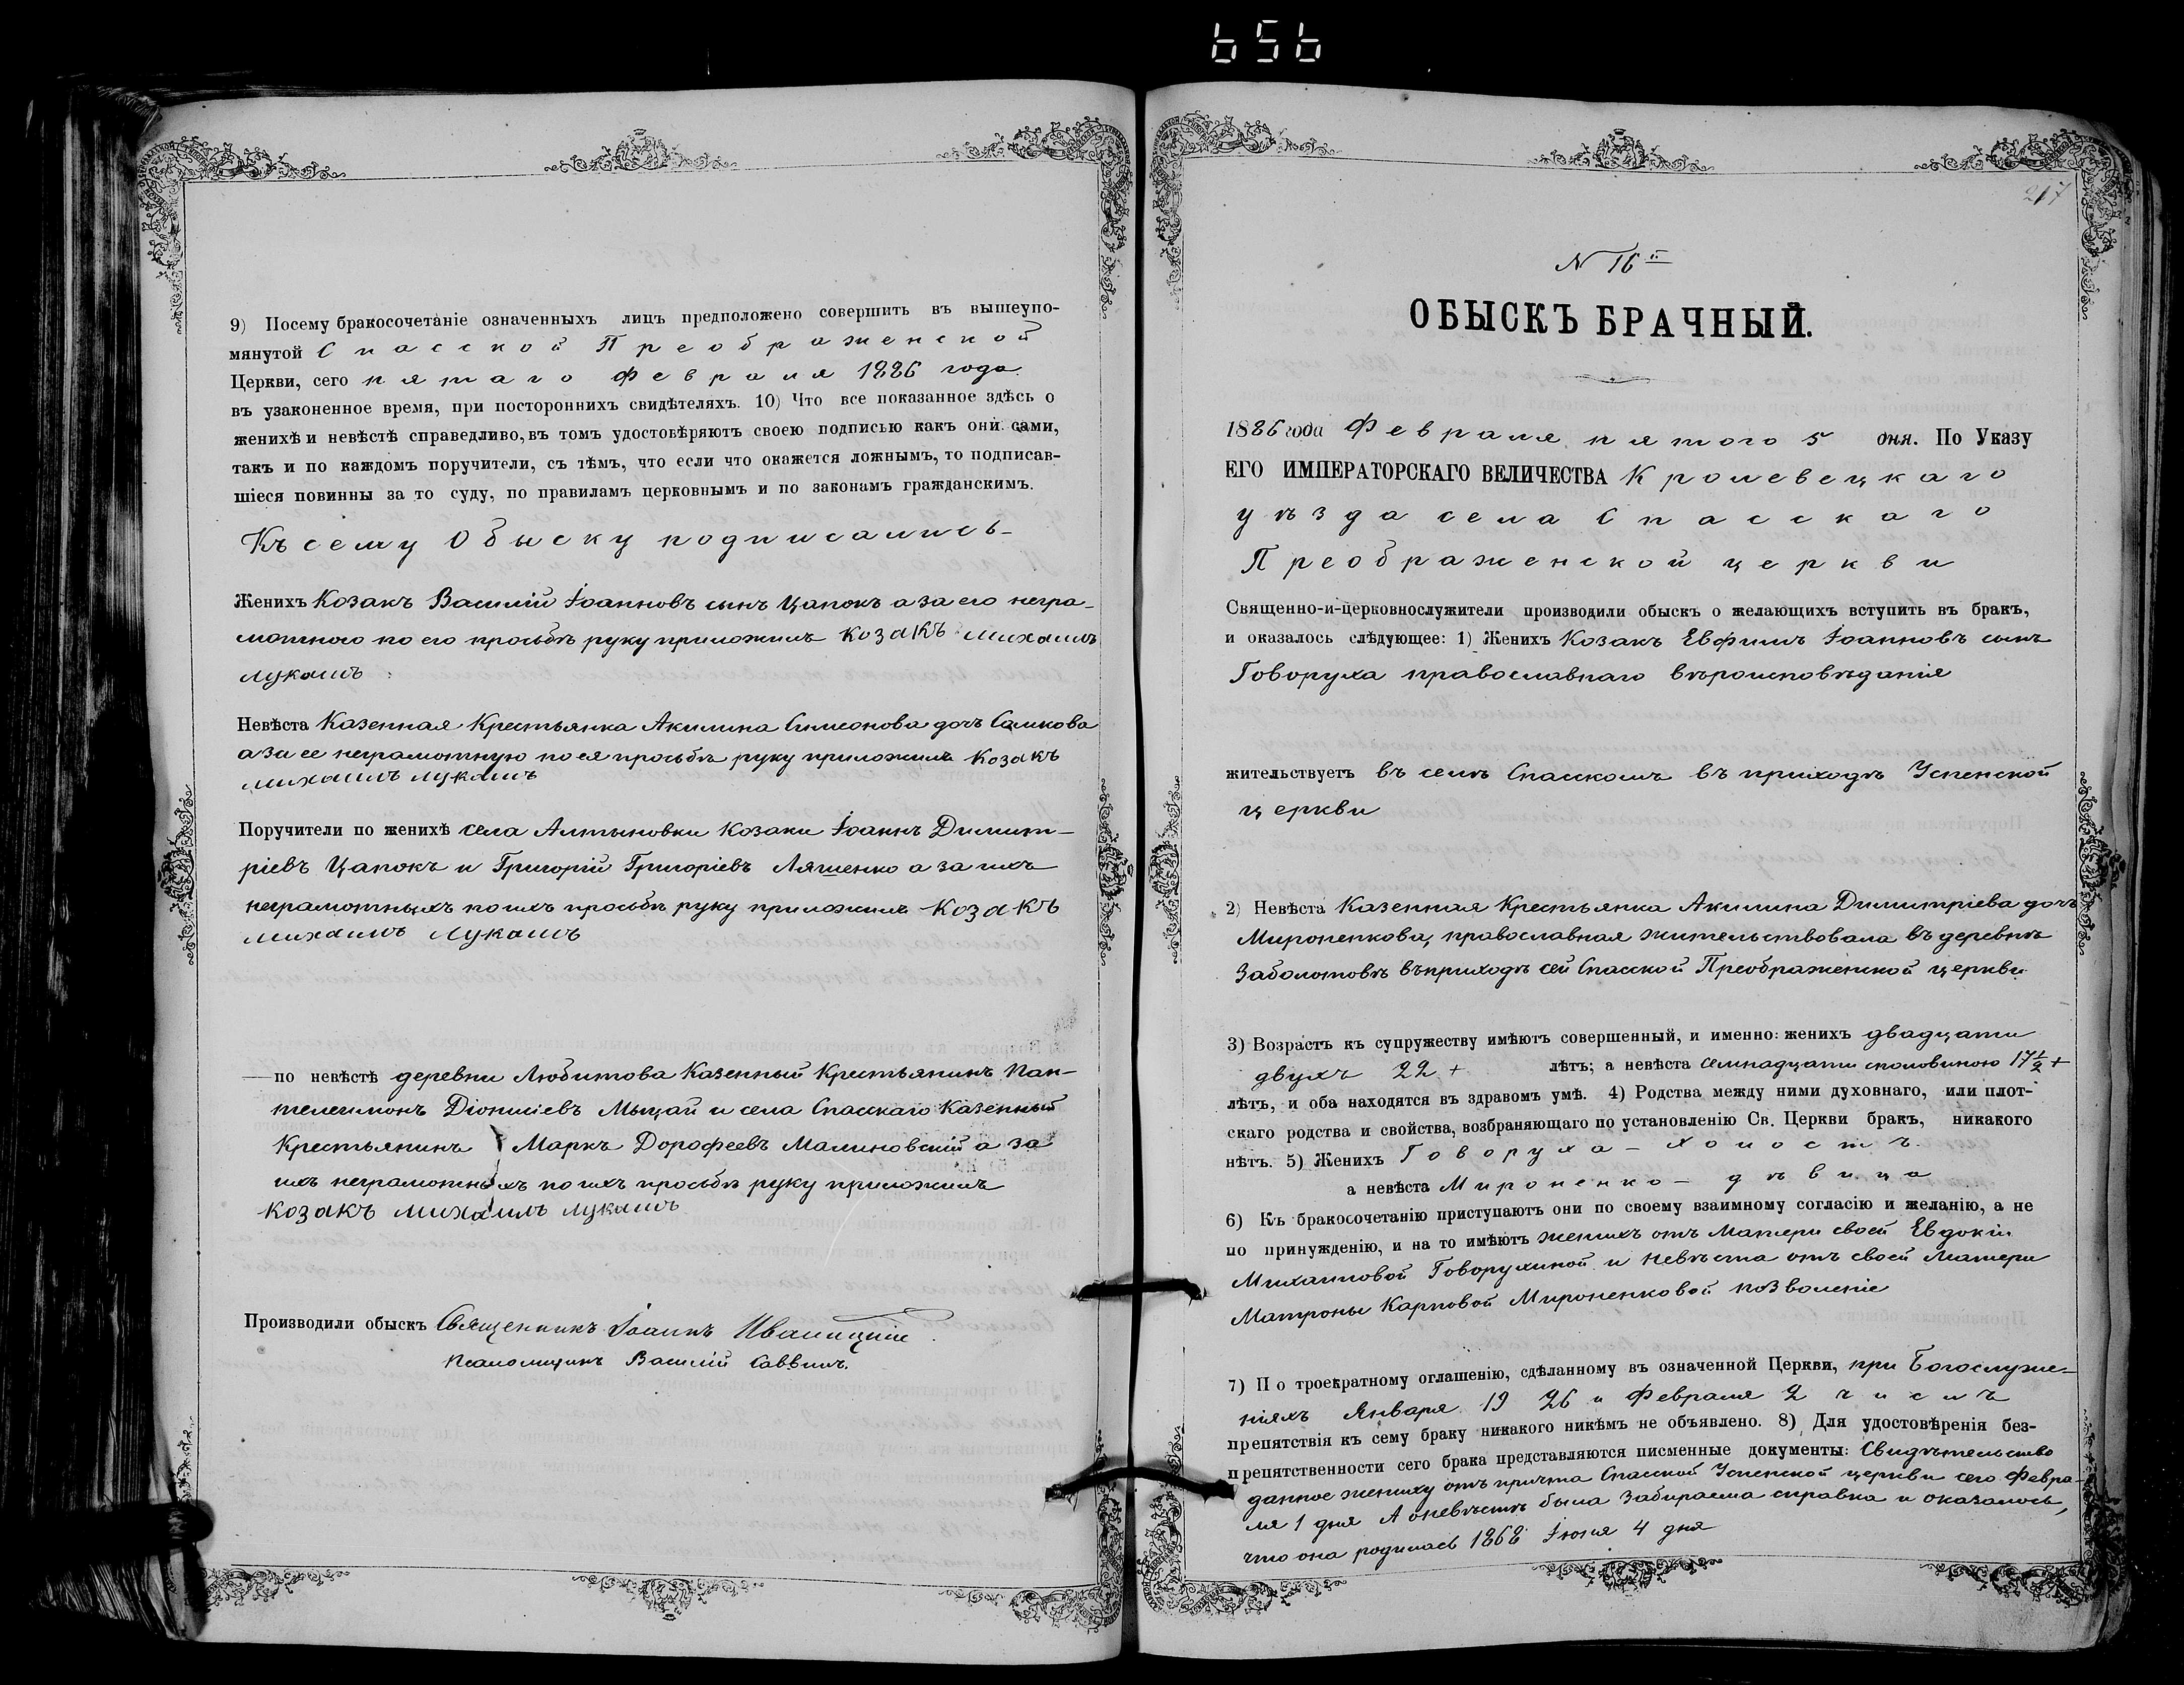 656
9) Посему бракосочетаніе означенныхъ лицъ предположено совершить въ вышеупо-
мянутой Спасской Преображенской
Церкви, сего пятаго Февраля 1886 года
въ узаконенное время, при постороннихъ свидѣтеляхъ. 10) Что все показанное здѣсь о
женихѣ и невѣстѣ справедливо, въ томъ удостовѣряютъ своею подписью какъ они сами,
такъ и по каждомъ поручители, съ тѣмъ, что если что окажется ложнымъ, то подписав-
шіеся повинны за то суду, по правиламъ церковнымъ и по законамъ гражданскимъ.
Къ сему Обыску подписались
Женихъ Козакъ Василій Іоанновъ сынъ Цапокъ а за его негра-
мотного по его просьбѣ руку приложилъ Козакъ Михаилъ
Лукашъ
Невѣста Казенная Крестьянка Акилина Симеонова дочь Самкова
а за ее неграмотную по ея просьбѣ руку приложилъ Козакъ
Михаилъ Лукашъ
Поручители по женихѣ села Алтыновки Козаки Іоаннъ Димит-
ріевъ Цапокъ и Григорій Григоріевъ Ляшенко а за ихъ
неграмотныхъ по ихъ просьбѣ руку приложилъ Козакъ
Михаилъ Лукашъ
— по невѣстѣ деревни Любитова Казенный Крестьянинъ Пан-
телеимонъ Діонисіевъ Мыцай и села Спасскаго Казенный
Крестьянинъ Маркъ Дорофеевъ Малиновскій а за
ихъ неграмотныхъ по ихъ просьбѣ руку приложилъ
Козакъ Михаилъ Лукашъ
Производили обыскъ Священникъ Іоаннъ Иваницкій
Псаломщикъ Василій Саввичъ.
217
N 16й
ОБЫСКЪ БРАЧНЫЙ.
1886 года Февраля пятого 5 дня. По Указу
ЕГО ИМПЕРАТОРСКАГО ВЕЛИЧЕСТВА Кролевецкаго
уѣзда села Спасскаго
Преображенской церкви
Священно-и-церковнослужители производили обыскъ о желающихъ вступить въ бракъ,
и оказалось слѣдующее: 1) Женихъ Козакъ Евфимъ Іоанновъ сынъ
Говоруха православнаго вѣроисповѣданія
жительствуетъ въ селѣ Спасскомъ въ приходѣ Успенской
церкви
2) Невѣста Казенная Крестьянка Акилина Димитріева дочь
Мироненкова, православная жительствовала въ деревнѣ
Заболотовѣ въ приходѣ сей Спасской Преображенской церкви
3) Возрастъ къ супружеству имѣютъ совершенный, и именно: женихъ двадцати
двухъ 22 + лѣтъ; а невѣста семнадцати споловиною 17 1/2 +
лѣтъ, и оба находятся въ здравомъ умѣ. 4) Родства между ними духовнаго, или плот-
скаго родства и свойства, возбраняющаго по установленію Св. Церкви бракъ, никакого
нѣтъ. 5) Женихъ Говоруха — холостъ.
а невѣста Мироненко — дѣвица
6) Къ бракосочетанію приступаютъ они по своему взаимному согласію и желанію, а не
по принужденію, и на то имѣютъ женихъ отъ Матери своей Евдокіи
Михаиловой Говорухиной и невѣста отъ своей Матери
Матроны Карповой Мироненковой позволеніе
7) По троекратному оглашенію, сдѣланному въ означенной Церкви, при Богослуже-
ніяхъ Января 19 26 и Февраля 2 числъ
препятствія къ сему браку никакого никѣмъ не объявлено. 8) Для удостовѣренія без-
препятственности сего брака представляются писменные документы: Свидѣтельство
данное жениху отъ причта Спасской Успенской церкви сего Февра-
ля 1 дня А оневѣстѣ была забираема справка и оказалось,
что она родилась 1868 Іюня 4 дня